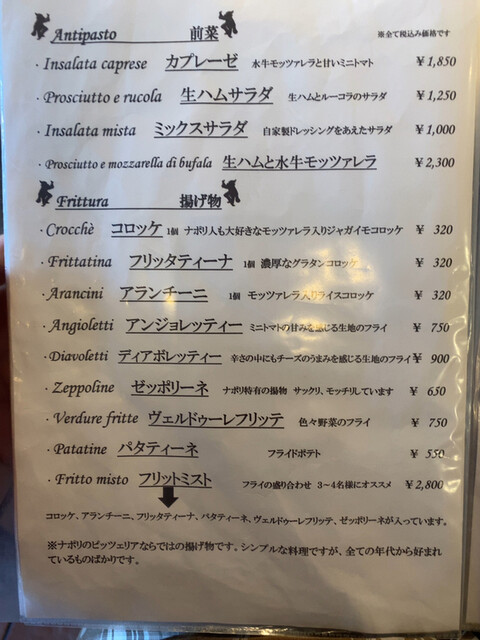 Antipasto 前菜 ※全て税込み価格です
・Insalata caprese カプレーゼ 水牛モッツァレラと甘いミニトマト ￥1,850
・Prosciutto e rucola 生ハムサラダ 生ハムとルーコラのサラダ ￥1,250
・Insalata mista ミックスサラダ 自家製ドレッシングをあえたサラダ ￥1,000
・Prosciutto e mozzarella di bufala 生ハムと水牛モッツァレラ ￥2,300
Frittura 揚げ物
・Crocchè コロッケ 1個 ナポリ人も大好きなモッツァレラ入りジャガイモコロッケ ￥ 320
・Frittatina フリッタティーナ 1個 濃厚なグラタンコロッケ ￥ 320
・Arancini アランチーニ 1個 モッツァレラ入りライスコロッケ ￥ 320
・Angioletti アンジョレッティー ミニトマトの甘みを感じる生地のフライ ￥ 750
・Diavoletti ディアボレッティー 辛さの中にもチーズのうまみを感じる生地のフライ ￥ 900
・Zeppoline ゼッポリーネ ナポリ特有の揚物 サックリ、モッチリしています ￥ 650
・Verdure fritte ヴェルドゥーレフリッテ 色々野菜のフライ ￥ 750
・Patatine パタティーネ フライドポテト ￥ 550
・Fritto misto フリットミスト フライの盛り合わせ 3～4名様にオススメ ￥2,800
コロッケ、アランチーニ、フリッタティーナ、パタティーネ、ヴェルドゥーレフリッテ、ゼッポリーネが入っています。
※ナポリのピッツェリアならではの揚げ物です。シンプルな料理ですが、全ての年代から好まれ
ているものばかりです。